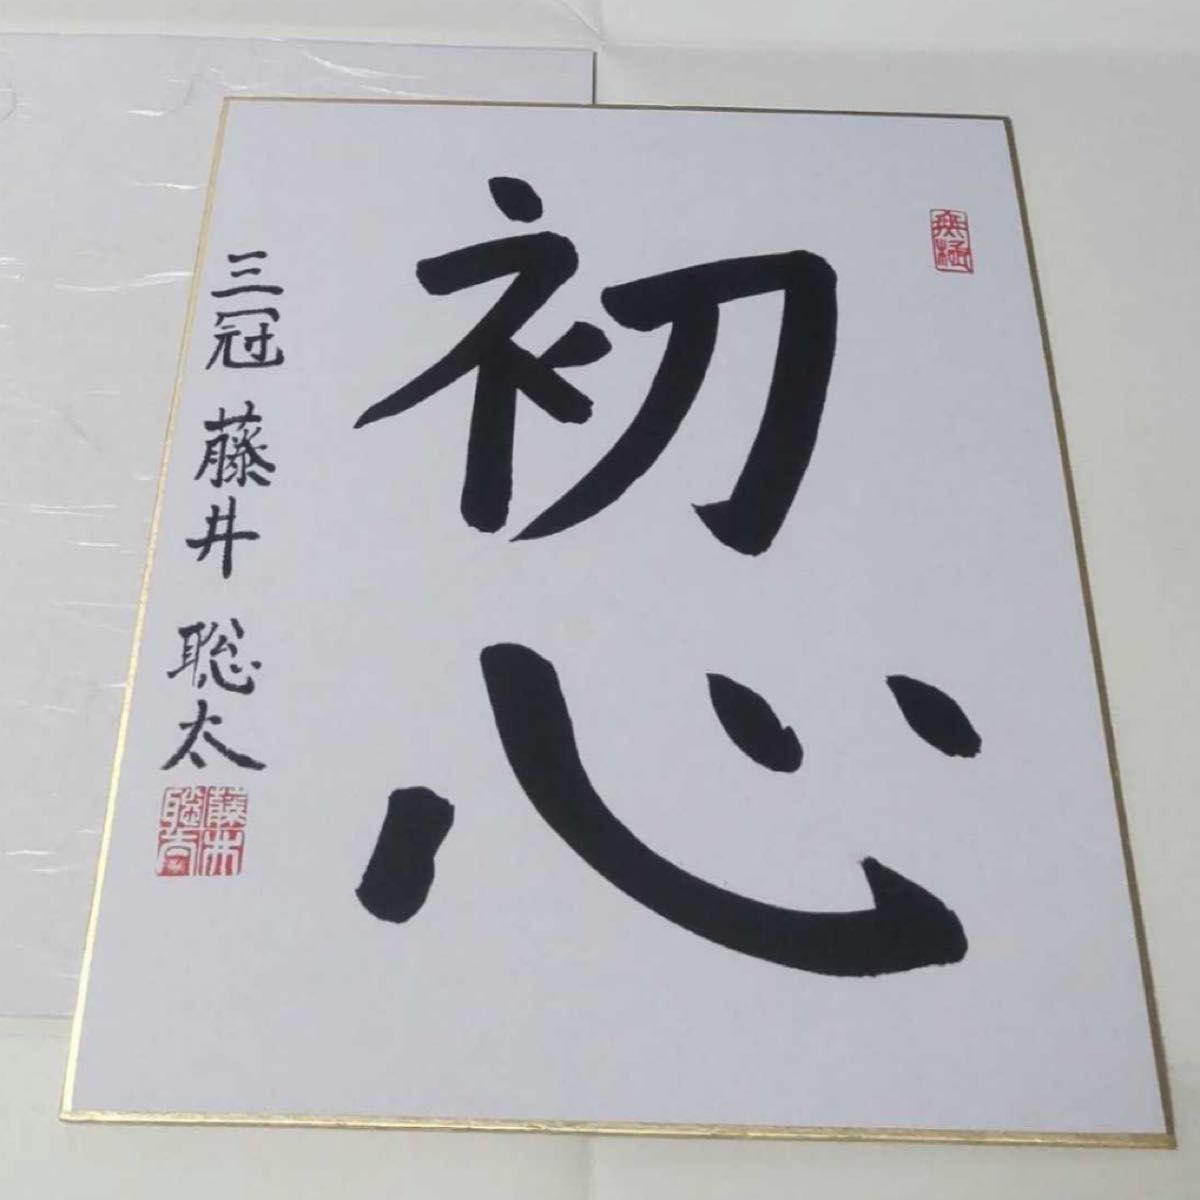 無極
初心
三冠 藤井 聡太
藤井
聡太